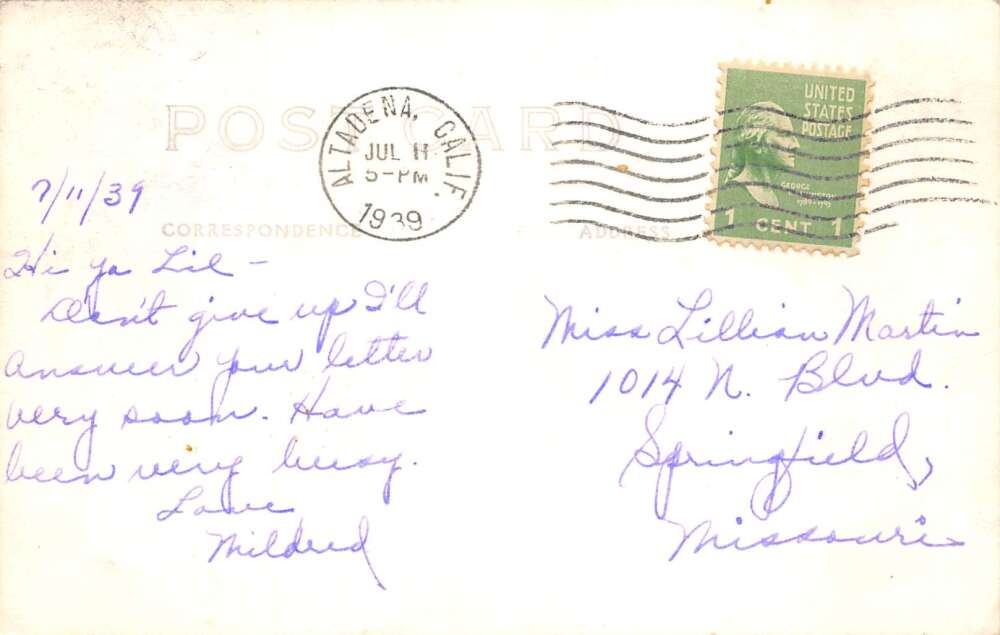 POST CARD
ALTADENA, CALIF.
JUL 11
5-PM
1939
UNITED
STATES
POSTAGE
GEORGE
WASHINGTON
1 CENT 1
7/11/39
CORRESPONDENCE
ADDRESS
Hi ya Lil –
Don't give up I'll
answer your letter
very soon. Have
been very busy.
Love
Mildred
Miss Lillian Martin
1014 N. Blvd.
Springfield,
Missouri